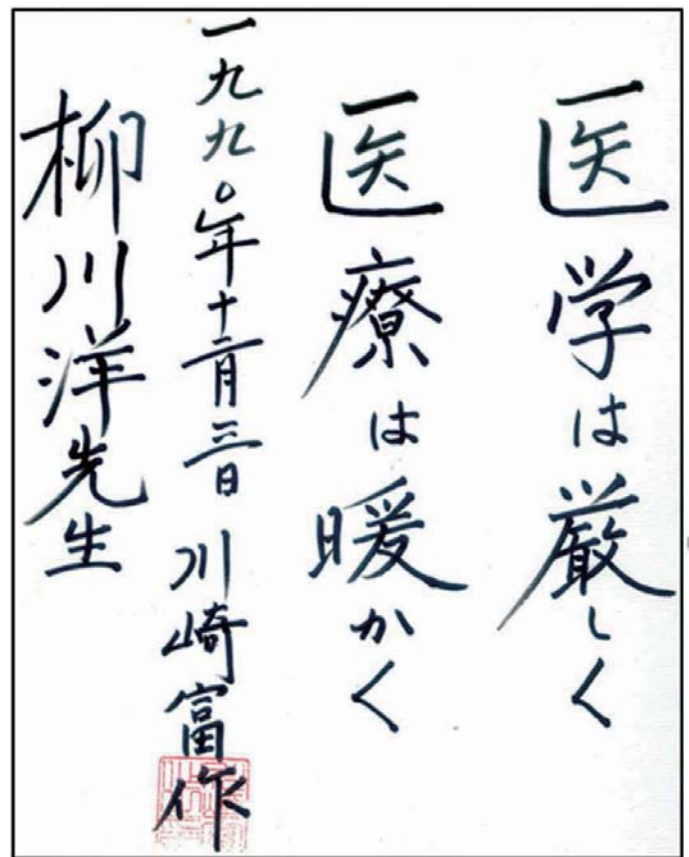 医学は厳しく
医療は暖かく
一九九〇年十二月三日 川崎富作
柳川洋先生